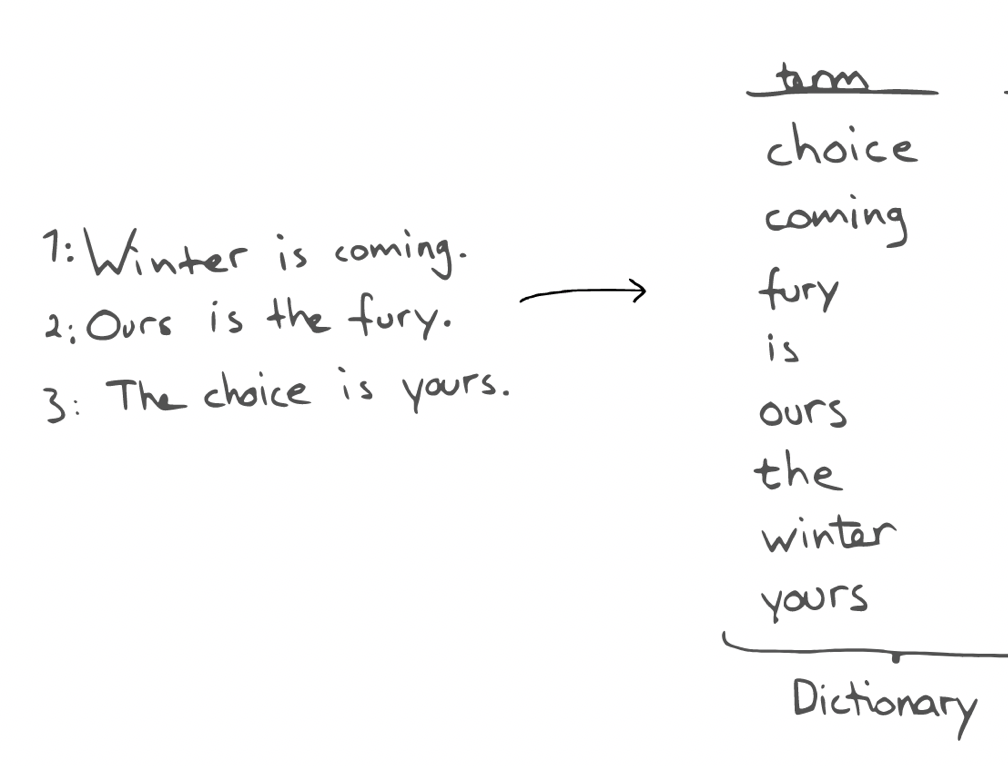 1: Winter is coming.
2: Ours is the fury.
3: The choice is yours.
term
choice
coming
fury
is
ours
the
winter
yours
Dictionary